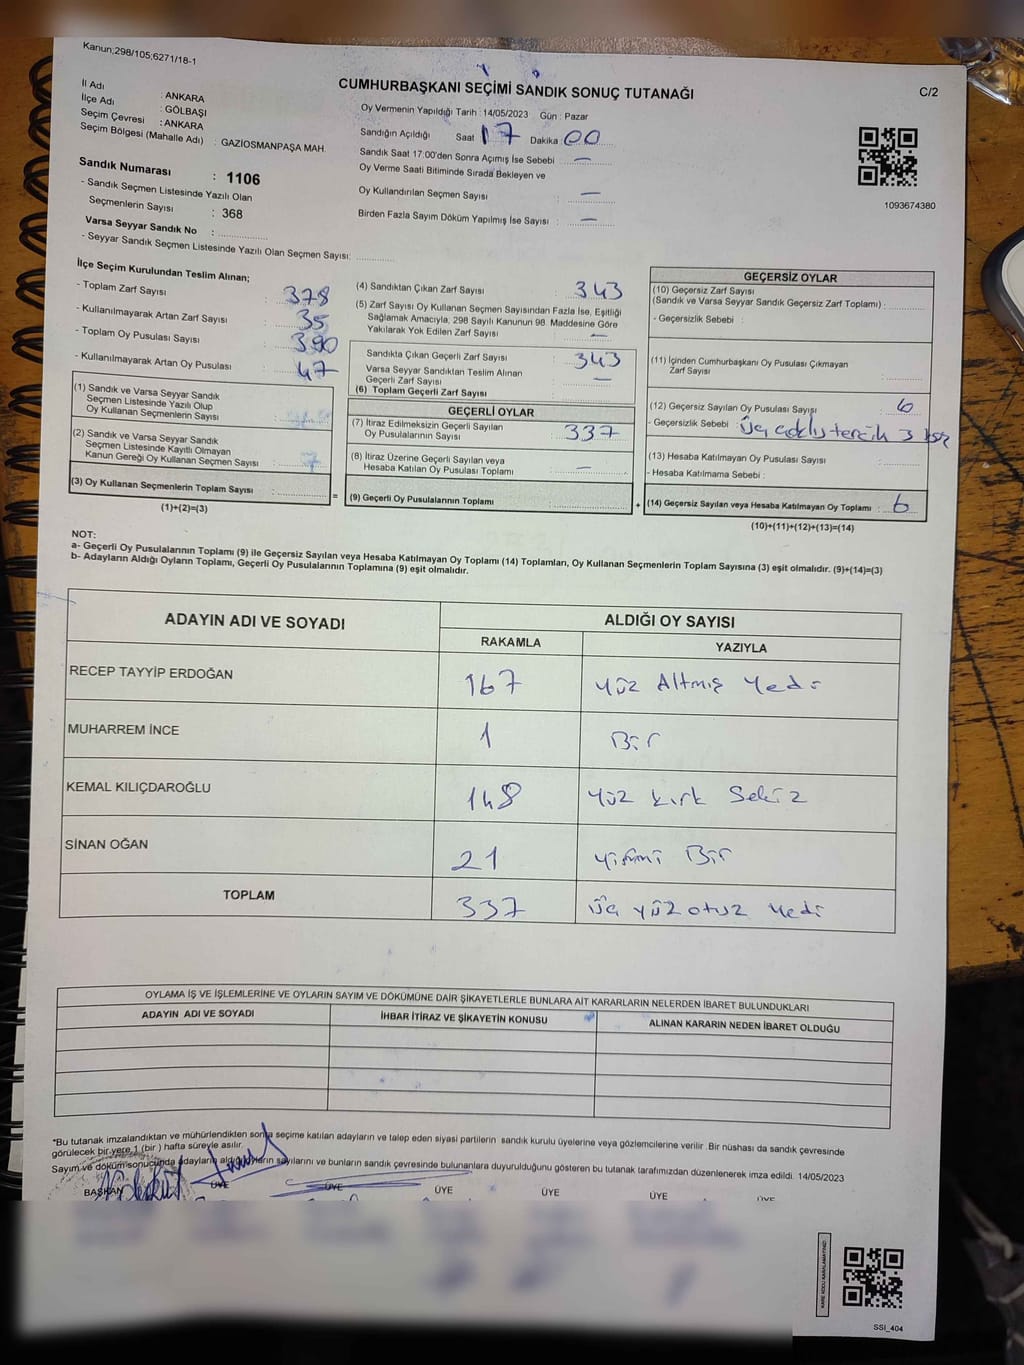 Kanun;298/105;6271/18-1
CUMHURBAŞKANI SEÇİMİ SANDIK SONUÇ TUTANAĞI
C/2
İl Adı : ANKARA
İlçe Adı : GÖLBAŞI
Seçim Çevresi : ANKARA
Seçim Bölgesi (Mahalle Adı) : GAZİOSMANPAŞA MAH.
Oy Vermenin Yapıldığı Tarih : 14/05/2023 Gün : Pazar
Sandığın Açıldığı Saat 17 Dakika 00
Sandık Saat 17:00'den Sonra Açımış İse Sebebi : —
Oy Verme Saati Bitiminde Sırada Bekleyen ve
Oy Kullandırılan Seçmen Sayısı : —
Birden Fazla Sayım Döküm Yapılmış İse Sayısı : —
1093674380
Sandık Numarası : 1106
- Sandık Seçmen Listesinde Yazılı Olan
Seçmenlerin Sayısı : 368
Varsa Seyyar Sandık No :
- Seyyar Sandık Seçmen Listesinde Yazılı Olan Seçmen Sayısı:
İlçe Seçim Kurulundan Teslim Alınan;
- Toplam Zarf Sayısı : 378
- Kullanılmayarak Artan Zarf Sayısı : 35
- Toplam Oy Pusulası Sayısı : 390
- Kullanılmayarak Artan Oy Pusulası : 47
(1) Sandık ve Varsa Seyyar Sandık
Seçmen Listesinde Yazılı Olup
Oy Kullanan Seçmenlerin Sayısı :
(2) Sandık ve Varsa Seyyar Sandık
Seçmen Listesinde Kayıtlı Olmayan
Kanun Gereği Oy Kullanan Seçmen Sayısı : 7
(3) Oy Kullanan Seçmenlerin Toplam Sayısı :
(1)+(2)=(3)
(4) Sandıktan Çıkan Zarf Sayısı : 343
(5) Zarf Sayısı Oy Kullanan Seçmen Sayısından Fazla İse, Eşitliği
Sağlamak Amacıyla, 298 Sayılı Kanunun 98. Maddesine Göre
Yakılarak Yok Edilen Zarf Sayısı : —
Sandıkta Çıkan Geçerli Zarf Sayısı : 343
Varsa Seyyar Sandıktan Teslim Alınan
Geçerli Zarf Sayısı : —
(6) Toplam Geçerli Zarf Sayısı :
=
GEÇERLİ OYLAR
(7) İtiraz Edilmeksizin Geçerli Sayılan
Oy Pusulalarının Sayısı : 337
(8) İtiraz Üzerine Geçerli Sayılan veya
Hesaba Katılan Oy Pusulası Toplamı : —
(9) Geçerli Oy Pusulalarının Toplamı :
+
GEÇERSİZ OYLAR
(10) Geçersiz Zarf Sayısı
(Sandık ve Varsa Seyyar Sandık Geçersiz Zarf Toplamı) :
- Geçersizlik Sebebi :
(11) İçinden Cumhurbaşkanı Oy Pusulası Çıkmayan
Zarf Sayısı :
(12) Geçersiz Sayılan Oy Pusulası Sayısı : 6
- Geçersizlik Sebebi : Üç tercih 3
(13) Hesaba Katılmayan Oy Pusulası Sayısı :
- Hesaba Katılmama Sebebi :
(14) Geçersiz Sayılan veya Hesaba Katılmayan Oy Toplamı : 6
(10)+(11)+(12)+(13)=(14)
NOT:
a- Geçerli Oy Pusulalarının Toplamı (9) ile Geçersiz Sayılan veya Hesaba Katılmayan Oy Toplamı (14) Toplamları, Oy Kullanan Seçmenlerin Toplam Sayısına (3) eşit olmalıdır. (9)+(14)=(3)
b- Adayların Aldığı Oyların Toplamı, Geçerli Oy Pusulalarının Toplamına (9) eşit olmalıdır.
ADAYIN ADI VE SOYADI ALDIĞI OY SAYISI
RAKAMLA YAZIYLA
RECEP TAYYİP ERDOĞAN 167 Yüz Altmış Yedi
MUHARREM İNCE 1 Bir
KEMAL KILIÇDAROĞLU 148 Yüz kırk Sekiz
SİNAN OĞAN 21 Yirmi Bir
TOPLAM 337 Üç yüz otuz Yedi
OYLAMA İŞ VE İŞLEMLERİNE VE OYLARIN SAYIM VE DÖKÜMÜNE DAİR ŞİKAYETLERLE BUNLARA AİT KARARLARIN NELERDEN İBARET BULUNDUKLARI
ADAYIN ADI VE SOYADI İHBAR İTİRAZ VE ŞİKAYETİN KONUSU ALINAN KARARIN NEDEN İBARET OLDUĞU
*Bu tutanak imzalandıktan ve mühürlendikten sonra seçime katılan adayların ve talep eden siyasi partilerin sandık kurulu üyelerine veya gözlemcilerine verilir .Bir nüshası da sandık çevresinde
görülecek bir yere 1 (bir ) hafta süreyle asılır.
Sayım ve döküm sonucunda adayların aldığı oyların sayılarını ve bunların sandık çevresinde bulunanlara duyurulduğunu gösteren bu tutanak tarafımızdan düzenlenerek imza edildi. 14/05/2023
BAŞKAN ÜYE ÜYE ÜYE ÜYE ÜYE ÜYE
KARE KODU KARALAMAYINIZ!
SSI_404